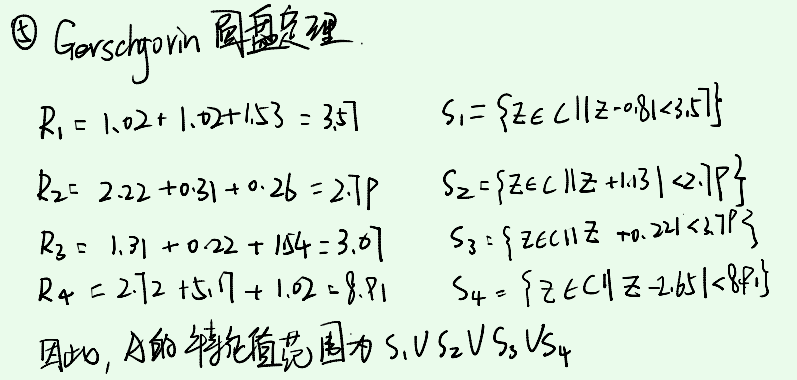 ⑤ Gerschgorin 圆盘定理.
R₁ = 1.02 + 1.02 + 1.53 = 3.57 S₁ = {Z ∈ C || Z - 0.81 < 3.57}
R₂ = 2.22 + 0.31 + 0.26 = 2.79 S₂ = {Z ∈ C || Z + 1.13 | < 2.79}
R₃ = 1.31 + 0.22 + 1.54 = 3.07 S₃ = {Z ∈ C || Z + 0.22 | < 2.79}
R₄ = 2.72 + 5.17 + 1.02 = 8.91 S₄ = {Z ∈ C || Z - 2.65 | < 8.91}
因此, A的特征值范围为 S₁ ∪ S₂ ∪ S₃ ∪ S₄